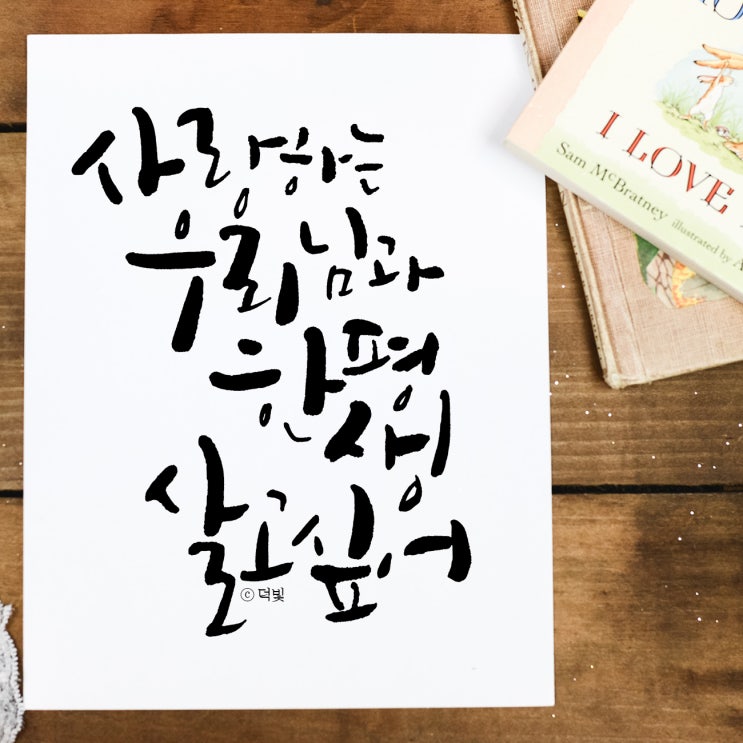 사랑하는
우리님과
한평생
살고싶어
ⓒ덕빛
I LOVE
Sam McBratney illustrated by